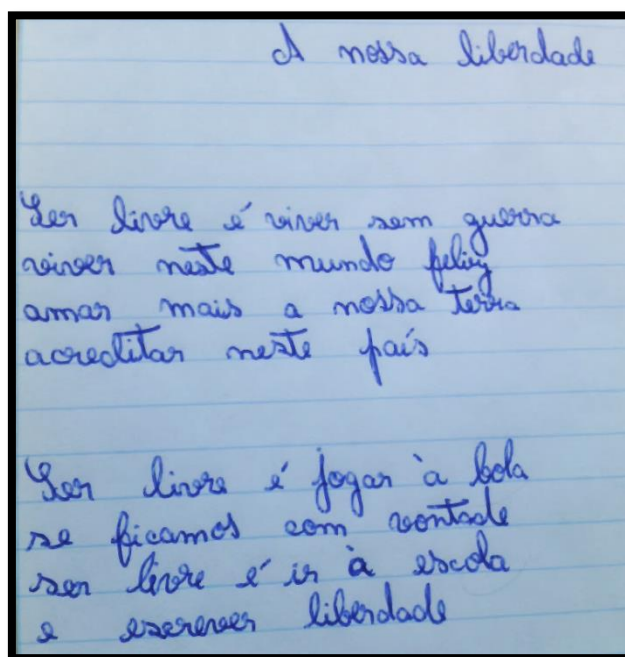 A nossa liberdade
Ser livre é viver sem guerra
viver neste mundo feliz
amar mais a nossa terra
acreditar neste país
Ser livre é jogar à bola
se ficamos com vontade
ser livre é ir à escola
e escrever liberdade